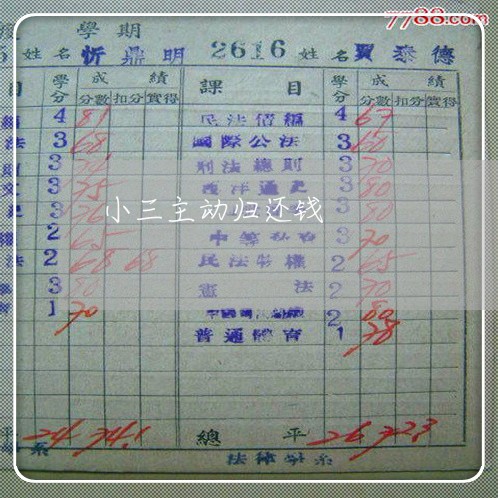 7788.com
學期
姓名 忻鼎明 2616 姓名 賈泰德
目 學分 成績 課目 學分 成績
分數 扣分 實得 分數 扣分 實得
4 81 民法債編 4 67
法 3 68 國際公法 3 60
3 刑法總則 3 70
3 75 西洋通史 3 80
3 76 3 80
小三主动归还钱
2 65 3 70
法 2 68 68 民法物權 2 65
3 80 憲法 2 70
1 70 2 80
普通體育 1 78
平 24 74.1 總平 26 72.3
系 法律學系